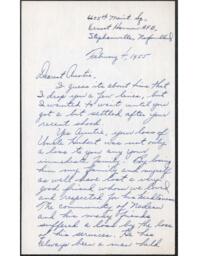 6605th Maint. Sq.
Ernest Harmon AFB,
Stephenville, Newfoundland
February 4, 1955
Dearest Auntie,
I guess its about time that
I drop you a few lines, but
I wanted to wait until you
got a bit settled after your
recent shock.
Yes Auntie, your loss of
Uncle Hubert was not only
a loss to you and your
immediate family. By losing
him my family and myself
as well have lost a very
good friend whom we loved
and respected for his kindness.
The community of
and his many friends
suffered a loss by the loss
of his services. He has
always been a man held